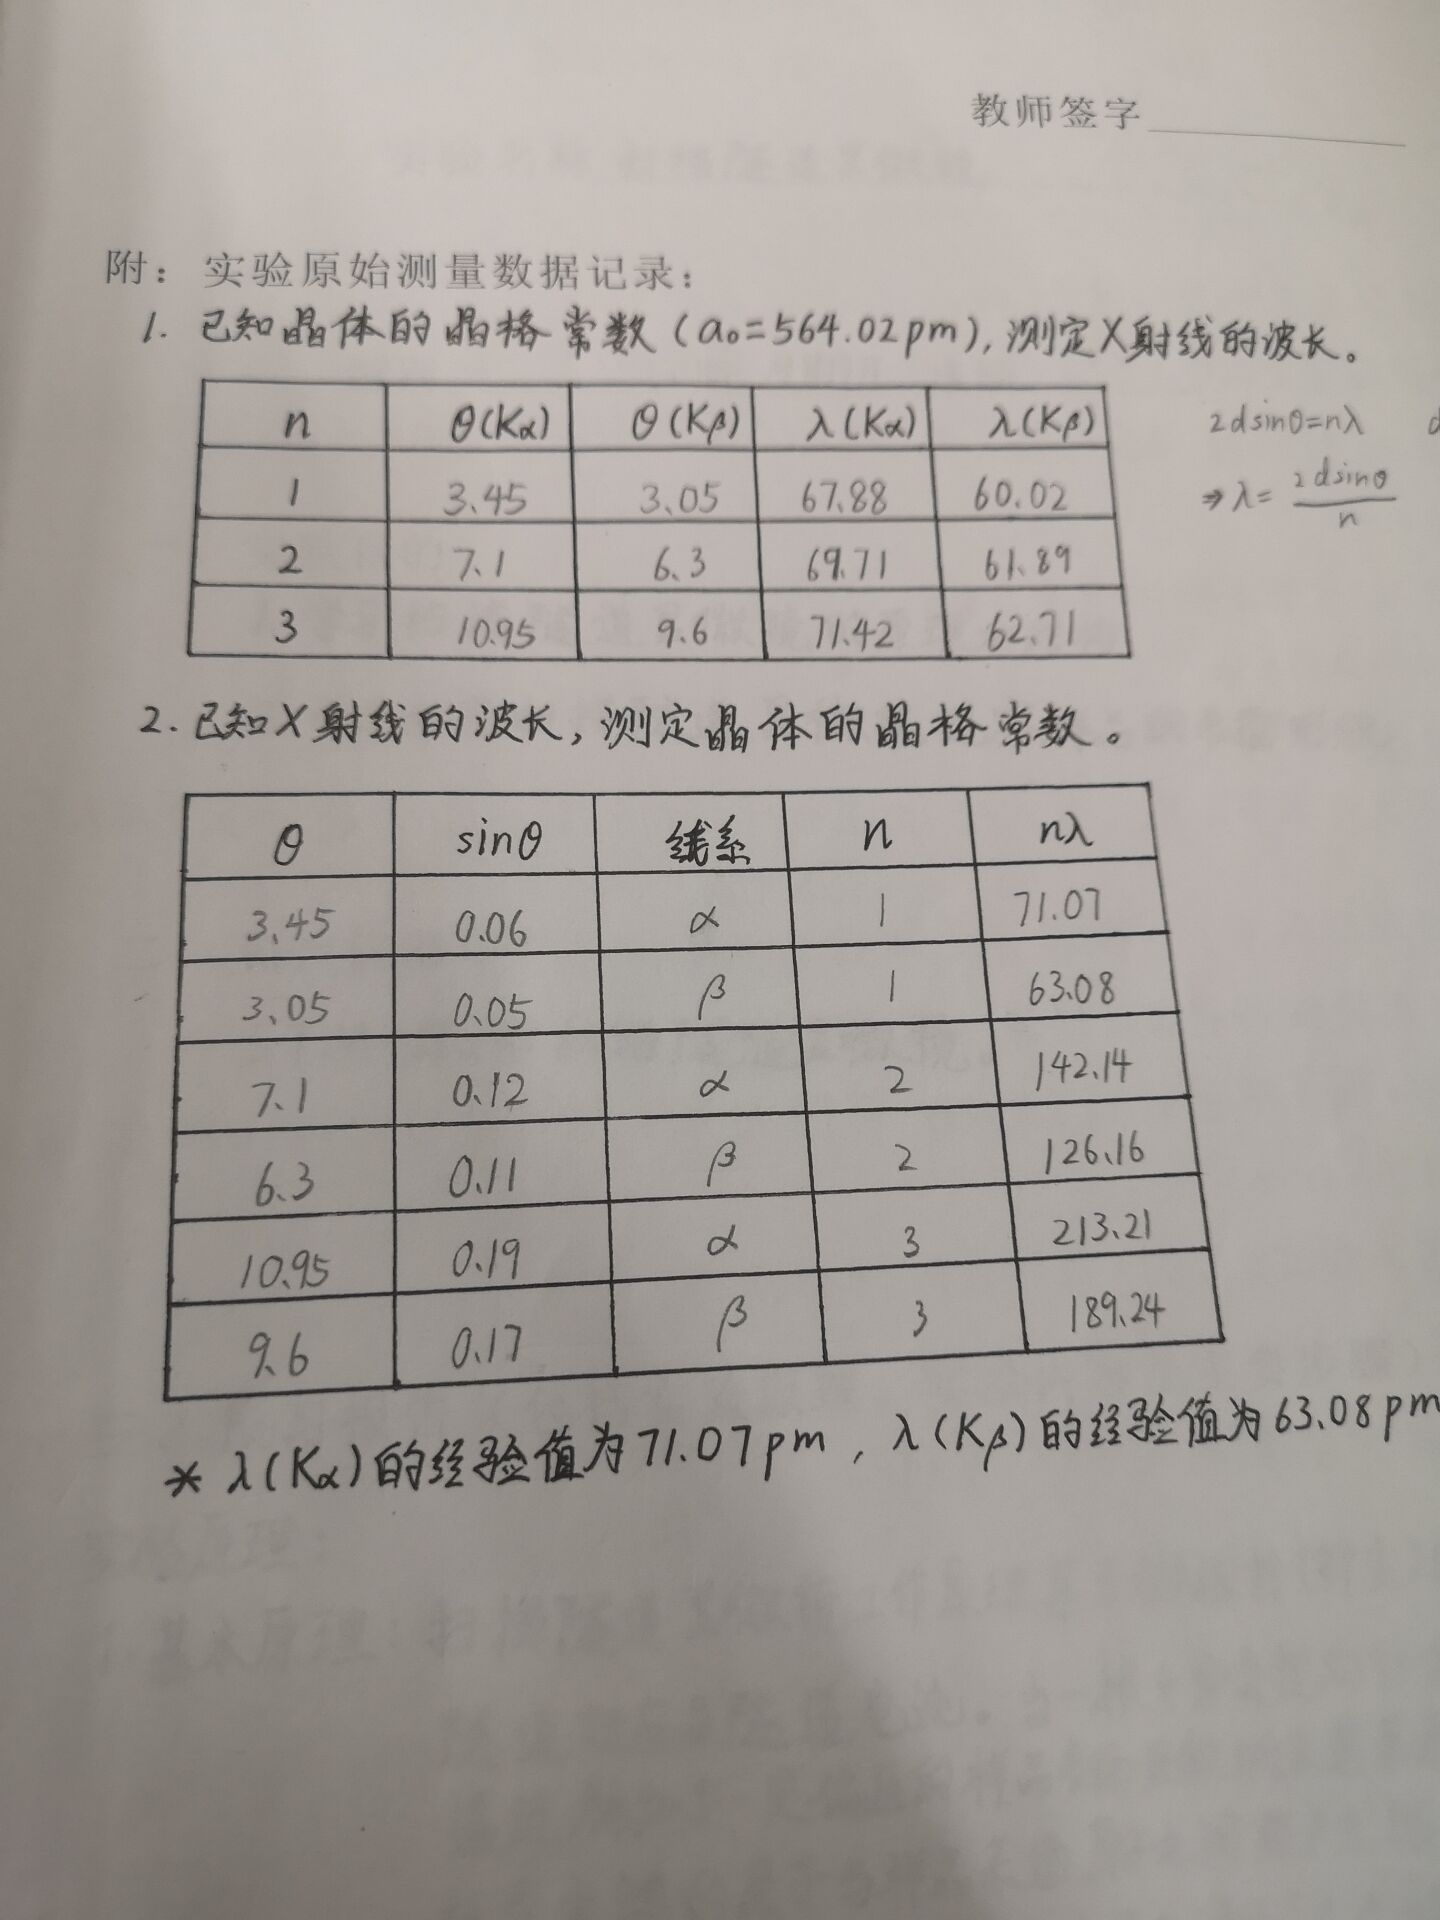 教师签字
附：实验原始测量数据记录：
1. 已知晶体的晶格常数（a₀=564.02pm），测定X射线的波长。
n θ(Kα) θ(Kβ) λ(Kα) λ(Kβ)
1 3.45 3.05 67.88 60.02
2 7.1 6.3 69.71 61.89
3 10.95 9.6 71.42 62.71
2dsinθ=nλ d
⇒λ= 2dsinθ/n
2. 已知X射线的波长，测定晶体的晶格常数。
θ sinθ 线系 n nλ
3.45 0.06 α 1 71.07
3.05 0.05 β 1 63.08
7.1 0.12 α 2 142.14
6.3 0.11 β 2 126.16
10.95 0.19 α 3 213.21
9.6 0.17 β 3 189.24
* λ(Kα)的经验值为71.07pm，λ(Kβ)的经验值为63.08pm